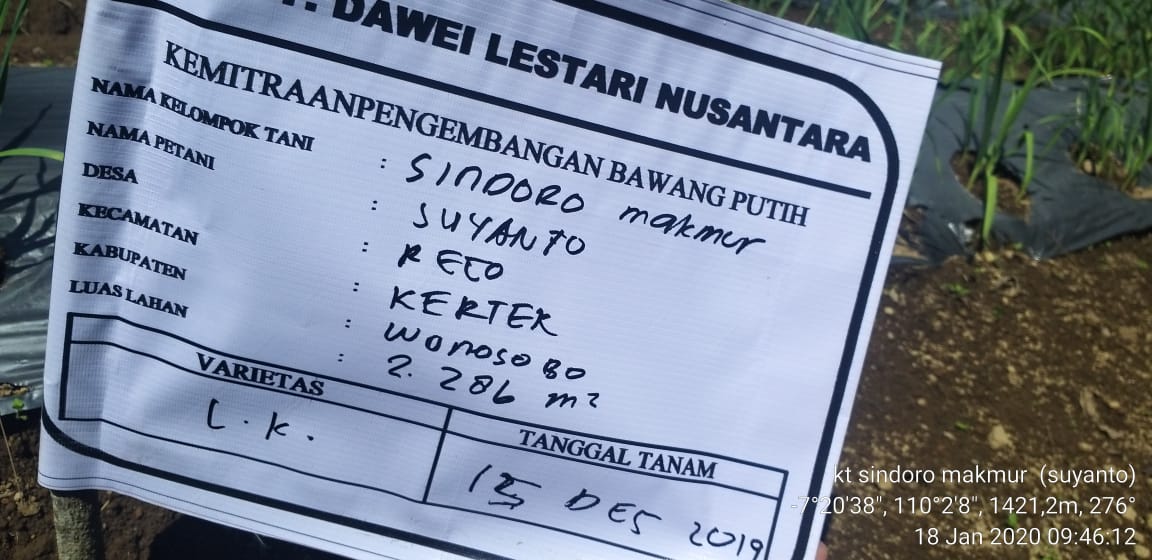 . DAWEI LESTARI NUSANTARA
KEMITRAANPENGEMBANGAN BAWANG PUTIH
NAMA KELOMPOK TANI : SINDORO makmur
NAMA PETANI : SUYANTO
DESA : RECO
KECAMATAN : KERTEK
KABUPATEN : WONOSOBO
LUAS LAHAN : 2.286 m²
VARIETAS TANGGAL TANAM
L.K. 15 DES 2019
kt sindoro makmur (suyanto)
-7°20'38", 110°2'8", 1421,2m, 276°
18 Jan 2020 09:46:12